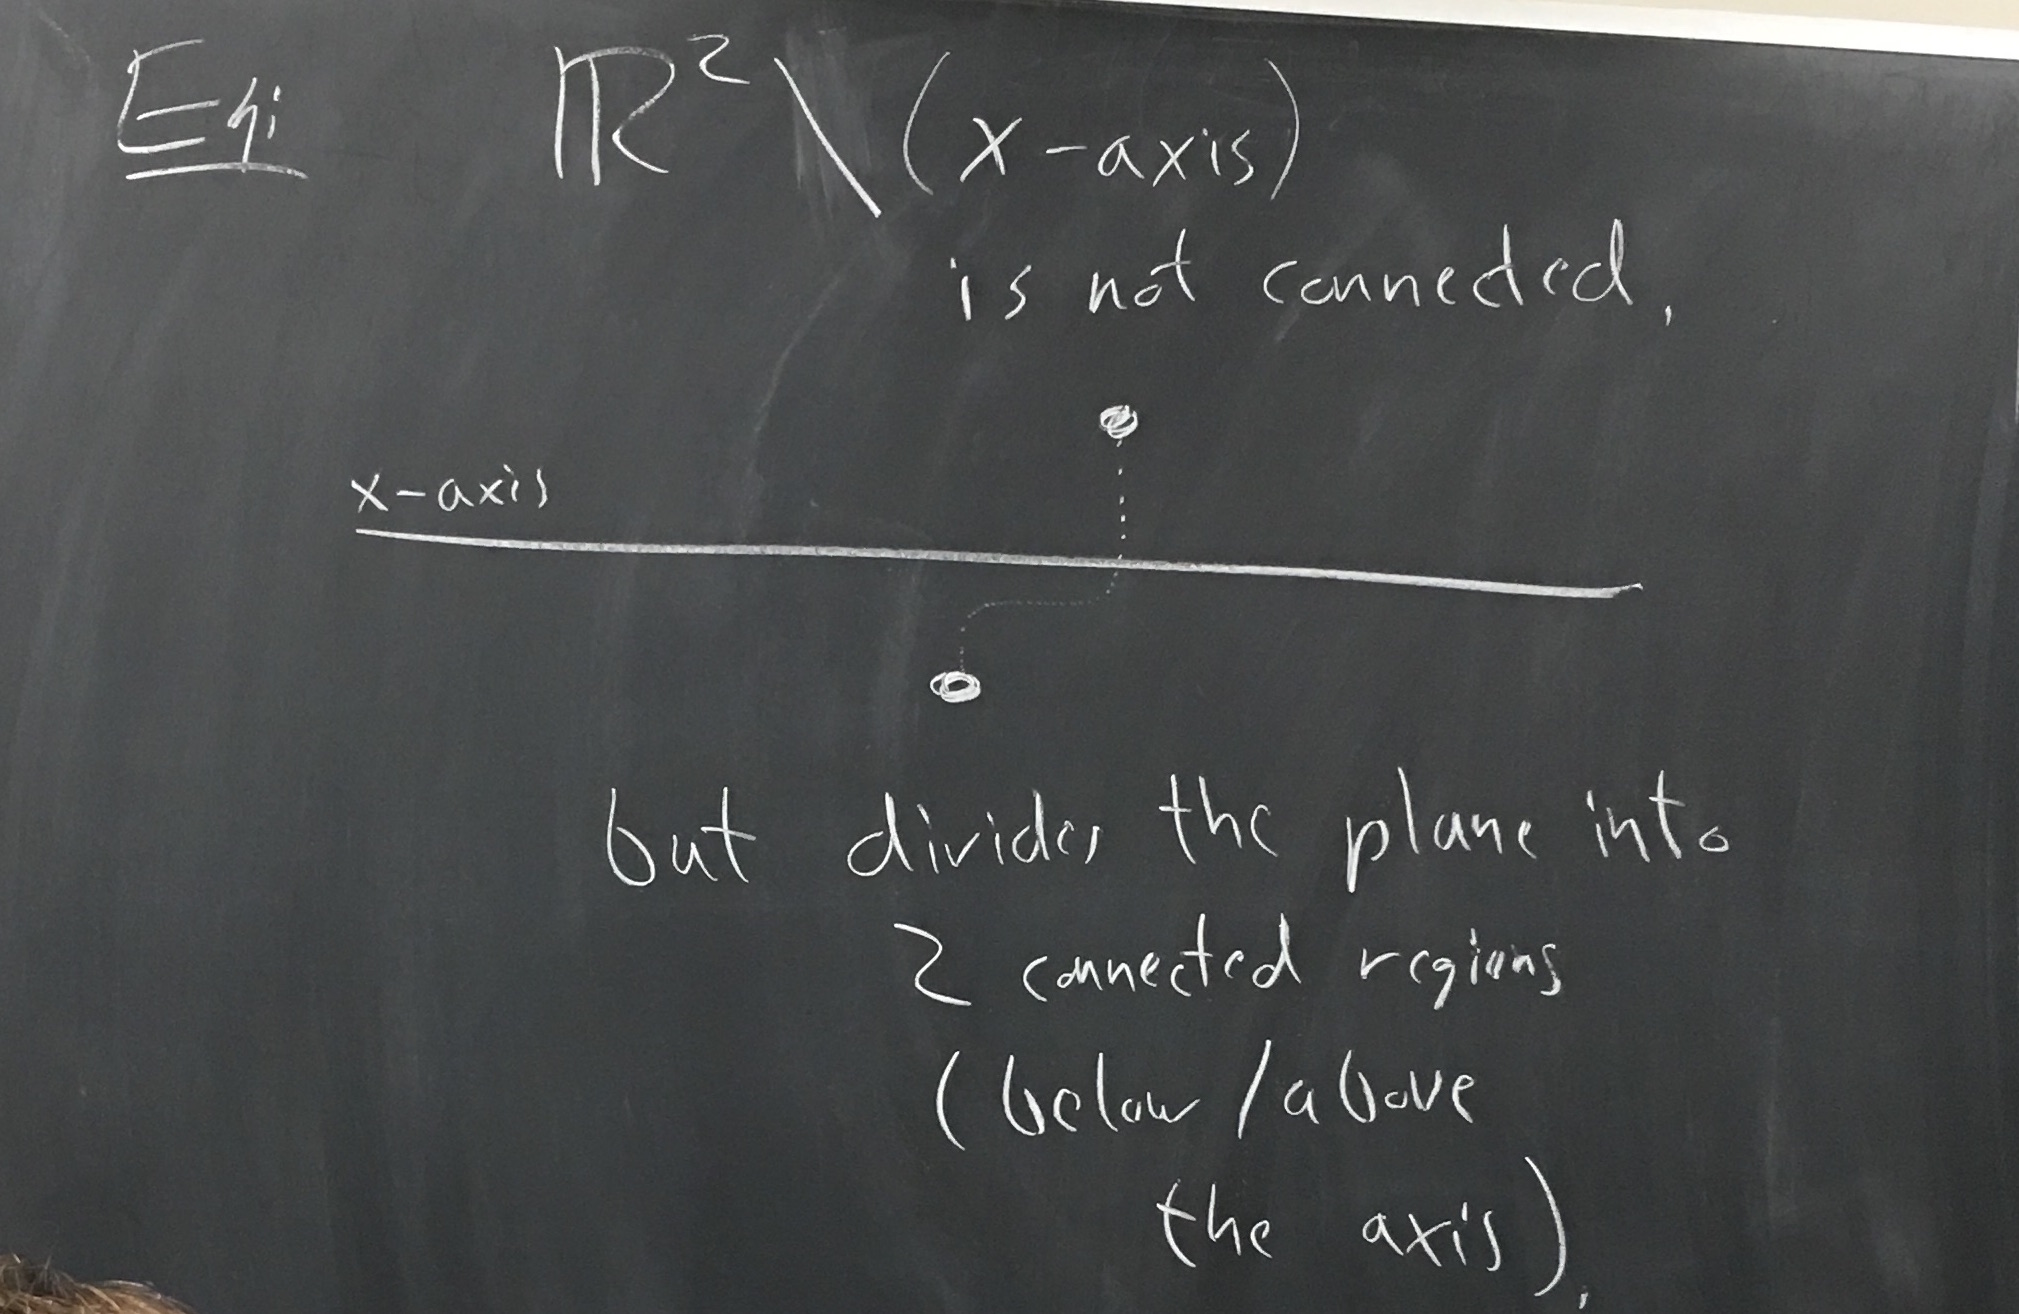 Eg: ℝ² \ (x-axis)
is not connected.
x-axis
but divides the plane into
2 connected regions
(below/above
the axis).